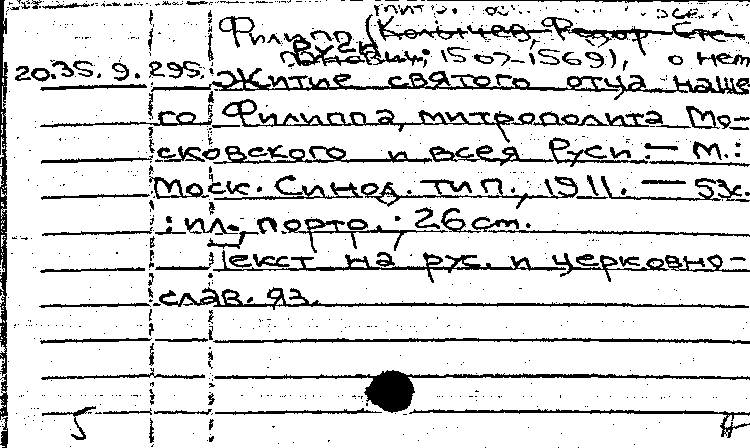 Филипп (Колычев, Федор Сте-
панович; 1507-1569), о нем
20.35.9.295. Житие святого отца наше
го Филиппа, митрополита Мо-
сковского и всея Руси. — М.:
Моск. Синод. тип., 1911. — 53с.
: ил., портр.; 26 cm.
Текст на рус. и церковно-
слав. яз.
5